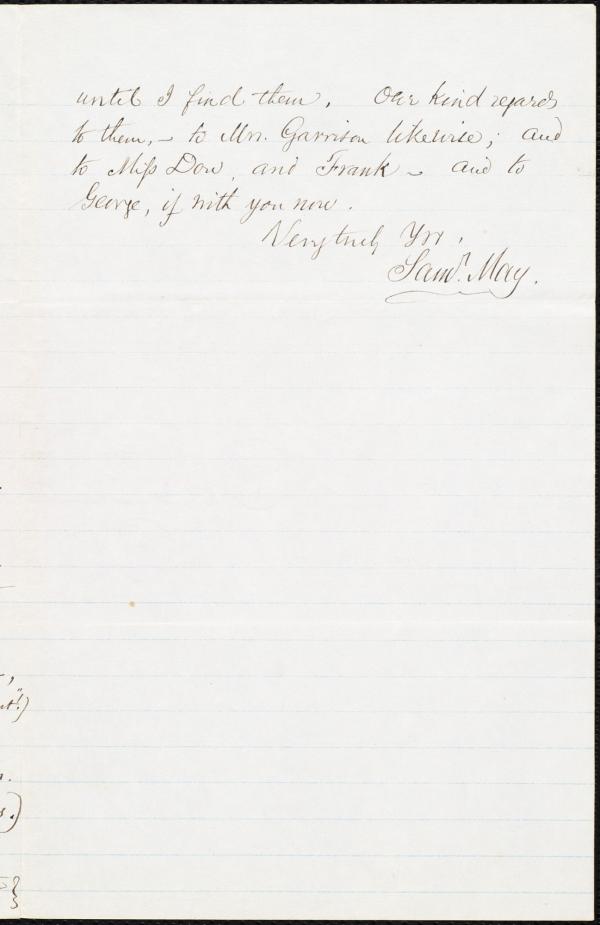 until I find them. Our kind regards
to them, – to Mrs. Garrison likewise; and
to Miss Dow, and Frank – and to
George, if with you now.
Very truly Yrs,
Saml. May.
t!")
s.)